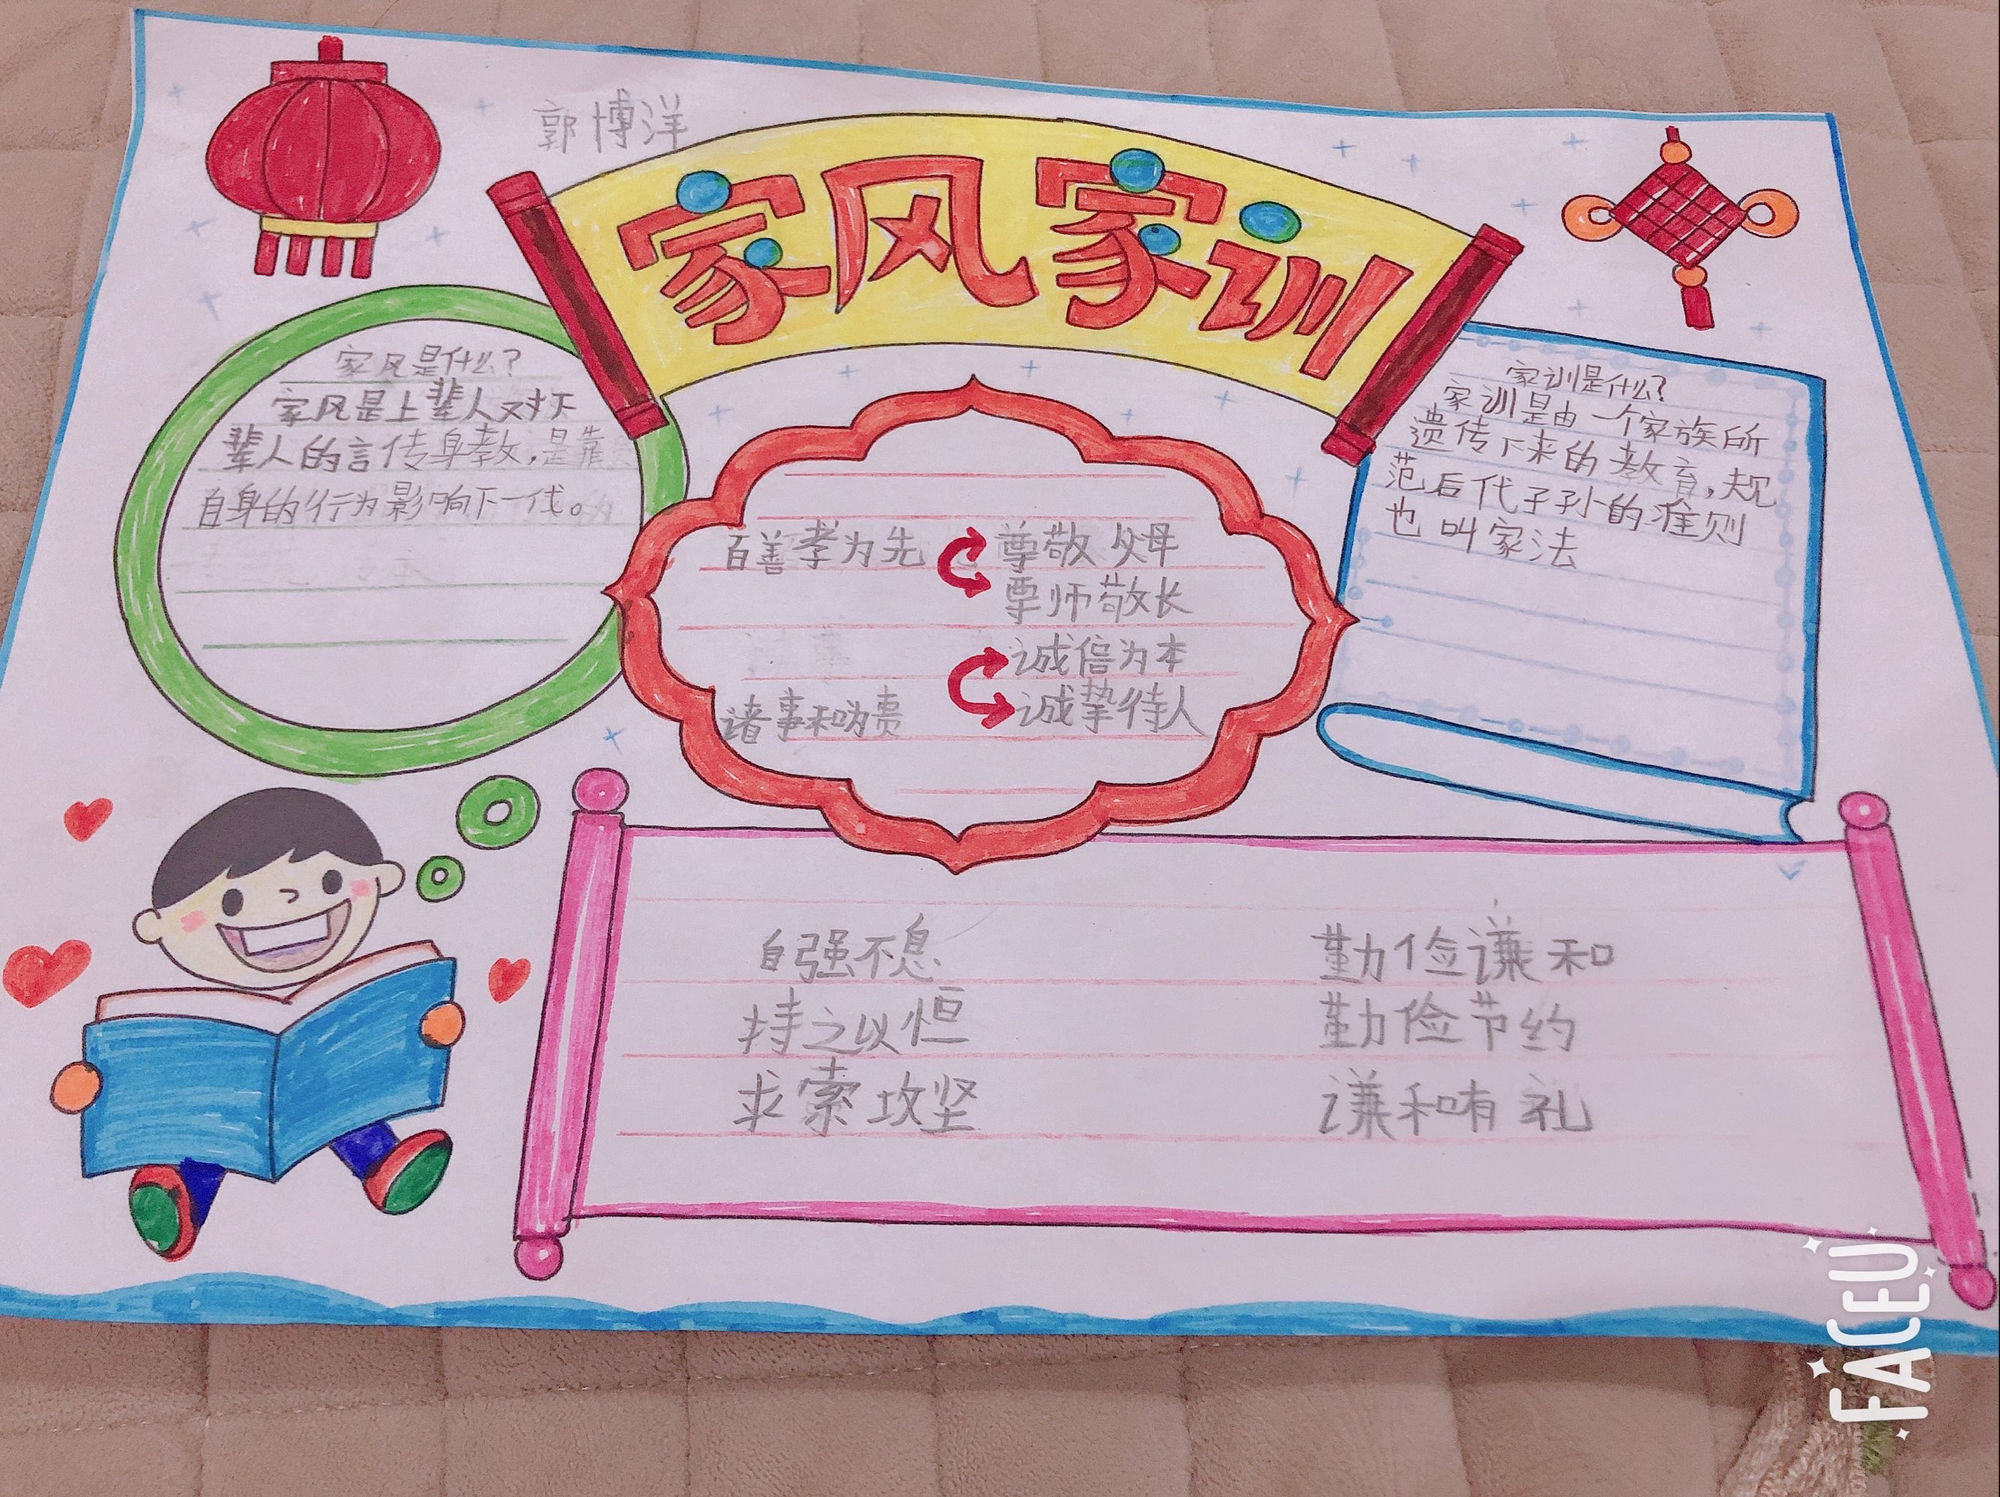 郭博洋
家风家训
家风是什么?
家风是上辈人对下
辈人的言传身教,是靠
自身的行为影响下一代。
百善孝为先
尊敬父母
尊师敬长
诚信为本
诸事和为贵
诚挚待人
家训是什么?
家训是由一个家族所
遗传下来的教育,规
范后代子孙的准则
也叫家法
自强不息
持之以恒
求索攻坚
勤俭谦和
勤俭节约
谦和有礼
FACEU